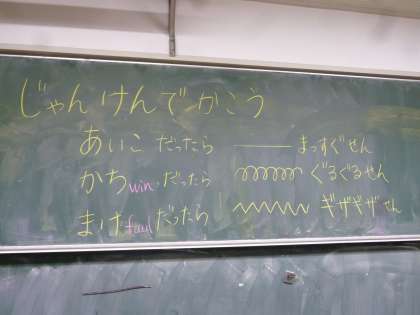 じゃんけんでかこう
あいこ だったら まっすぐせん
かちwin だったら ぐるぐるせん
まけfailだったら ギザギザせん